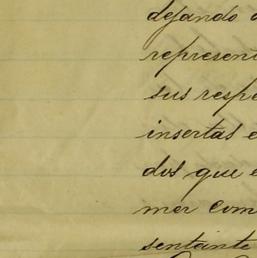 dejando
represent
sus respe
insertas e
dos que e
mer com
sentante